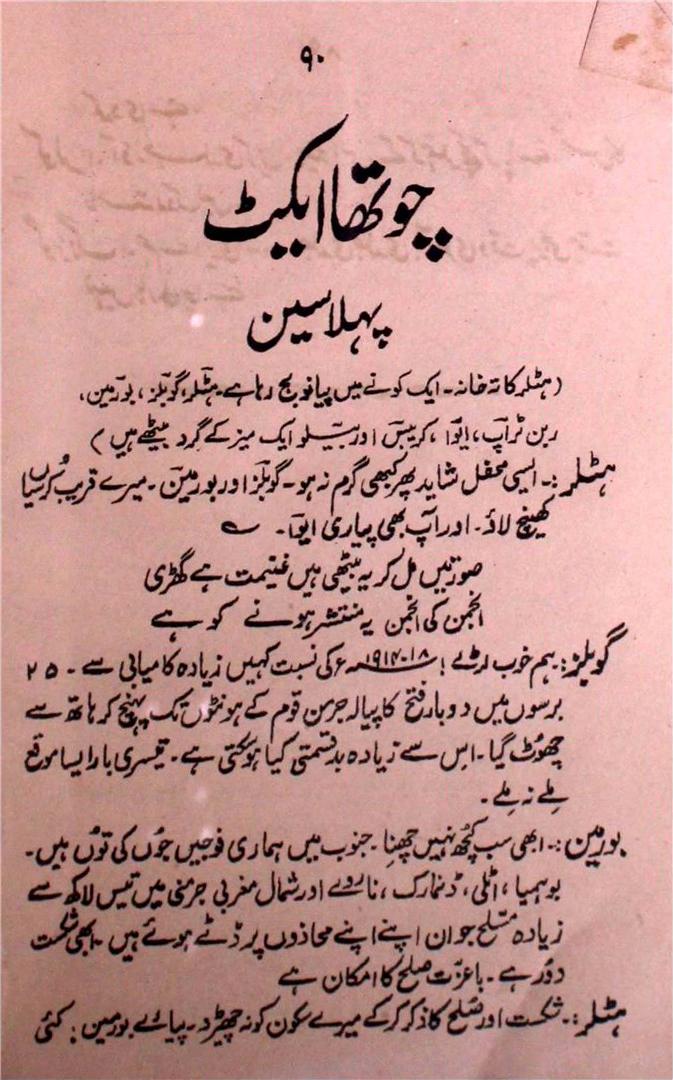 ۹۰
چوتھا ایکٹ
پہلا سین
(ہٹلر کا تہ خانہ۔ ایک کونے میں پیانو بج رہا ہے۔ ہٹلر، گوبلز، بورمین،
ربن ٹراپ، ایوا، کربس اور ہیلو ایک میز کے گرد بیٹھے ہیں)
ہٹلر:۔ ایسی محفل شاید پھر کبھی گرم نہ ہو۔ گوبلز اور بورمین۔ میرے قریب کُرسیاں
کھینچ لاؤ۔ اور آپ بھی پیاری ایوا۔ ؎
صورتیں مل کر یہ بیٹھی ہیں غنیمت ہے گھڑی
انجمن کی انجمن یہ منتشر ہونے کو ہے
گوبلز: ہم خوب لڑے! ۱۸-۱۹۱۴ء کی نسبت کہیں زیادہ کامیابی سے۔ ۲۵
برسوں میں دو بار فتح کا پیالہ جرمن قوم کے ہونٹوں تک پہنچ کر ہاتھ سے
چھوٹ گیا۔ اس سے زیادہ بدقسمتی کیا ہو سکتی ہے۔ تیسری بار ایسا موقع
ملے نہ ملے۔
بورمین:۔ ابھی سب کچھ نہیں چھنا۔ جنوب میں ہماری فوجیں جُوں کی توُں ہیں۔
بوہیمیا، اٹلی، ڈنمارک، ناروے اور شمال مغربی جرمنی میں تیس لاکھ سے
زیادہ مسلح جوان اپنے اپنے محاذوں پر ڈٹے ہوئے ہیں۔ ابھی شکست
دوُر ہے۔ باعزت صلح کا امکان ہے
ہٹلر:۔ شکست اور صُلح کا ذکر کر کے میرے سکون کو نہ چھیڑو۔ پیارے بورمین: کئی